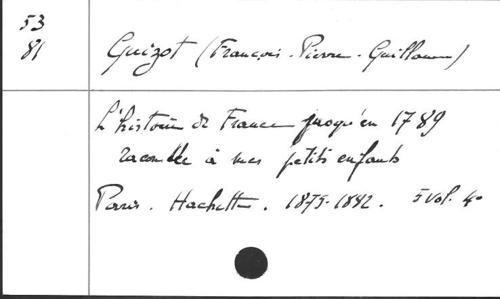 53
81
Guizot (François-Pierre-Guillaume)
L'histoire de France jusqu'en 1789
racontée à mes petits enfants
Paris. Hachette. 1875-1882. 5 vol. 4°